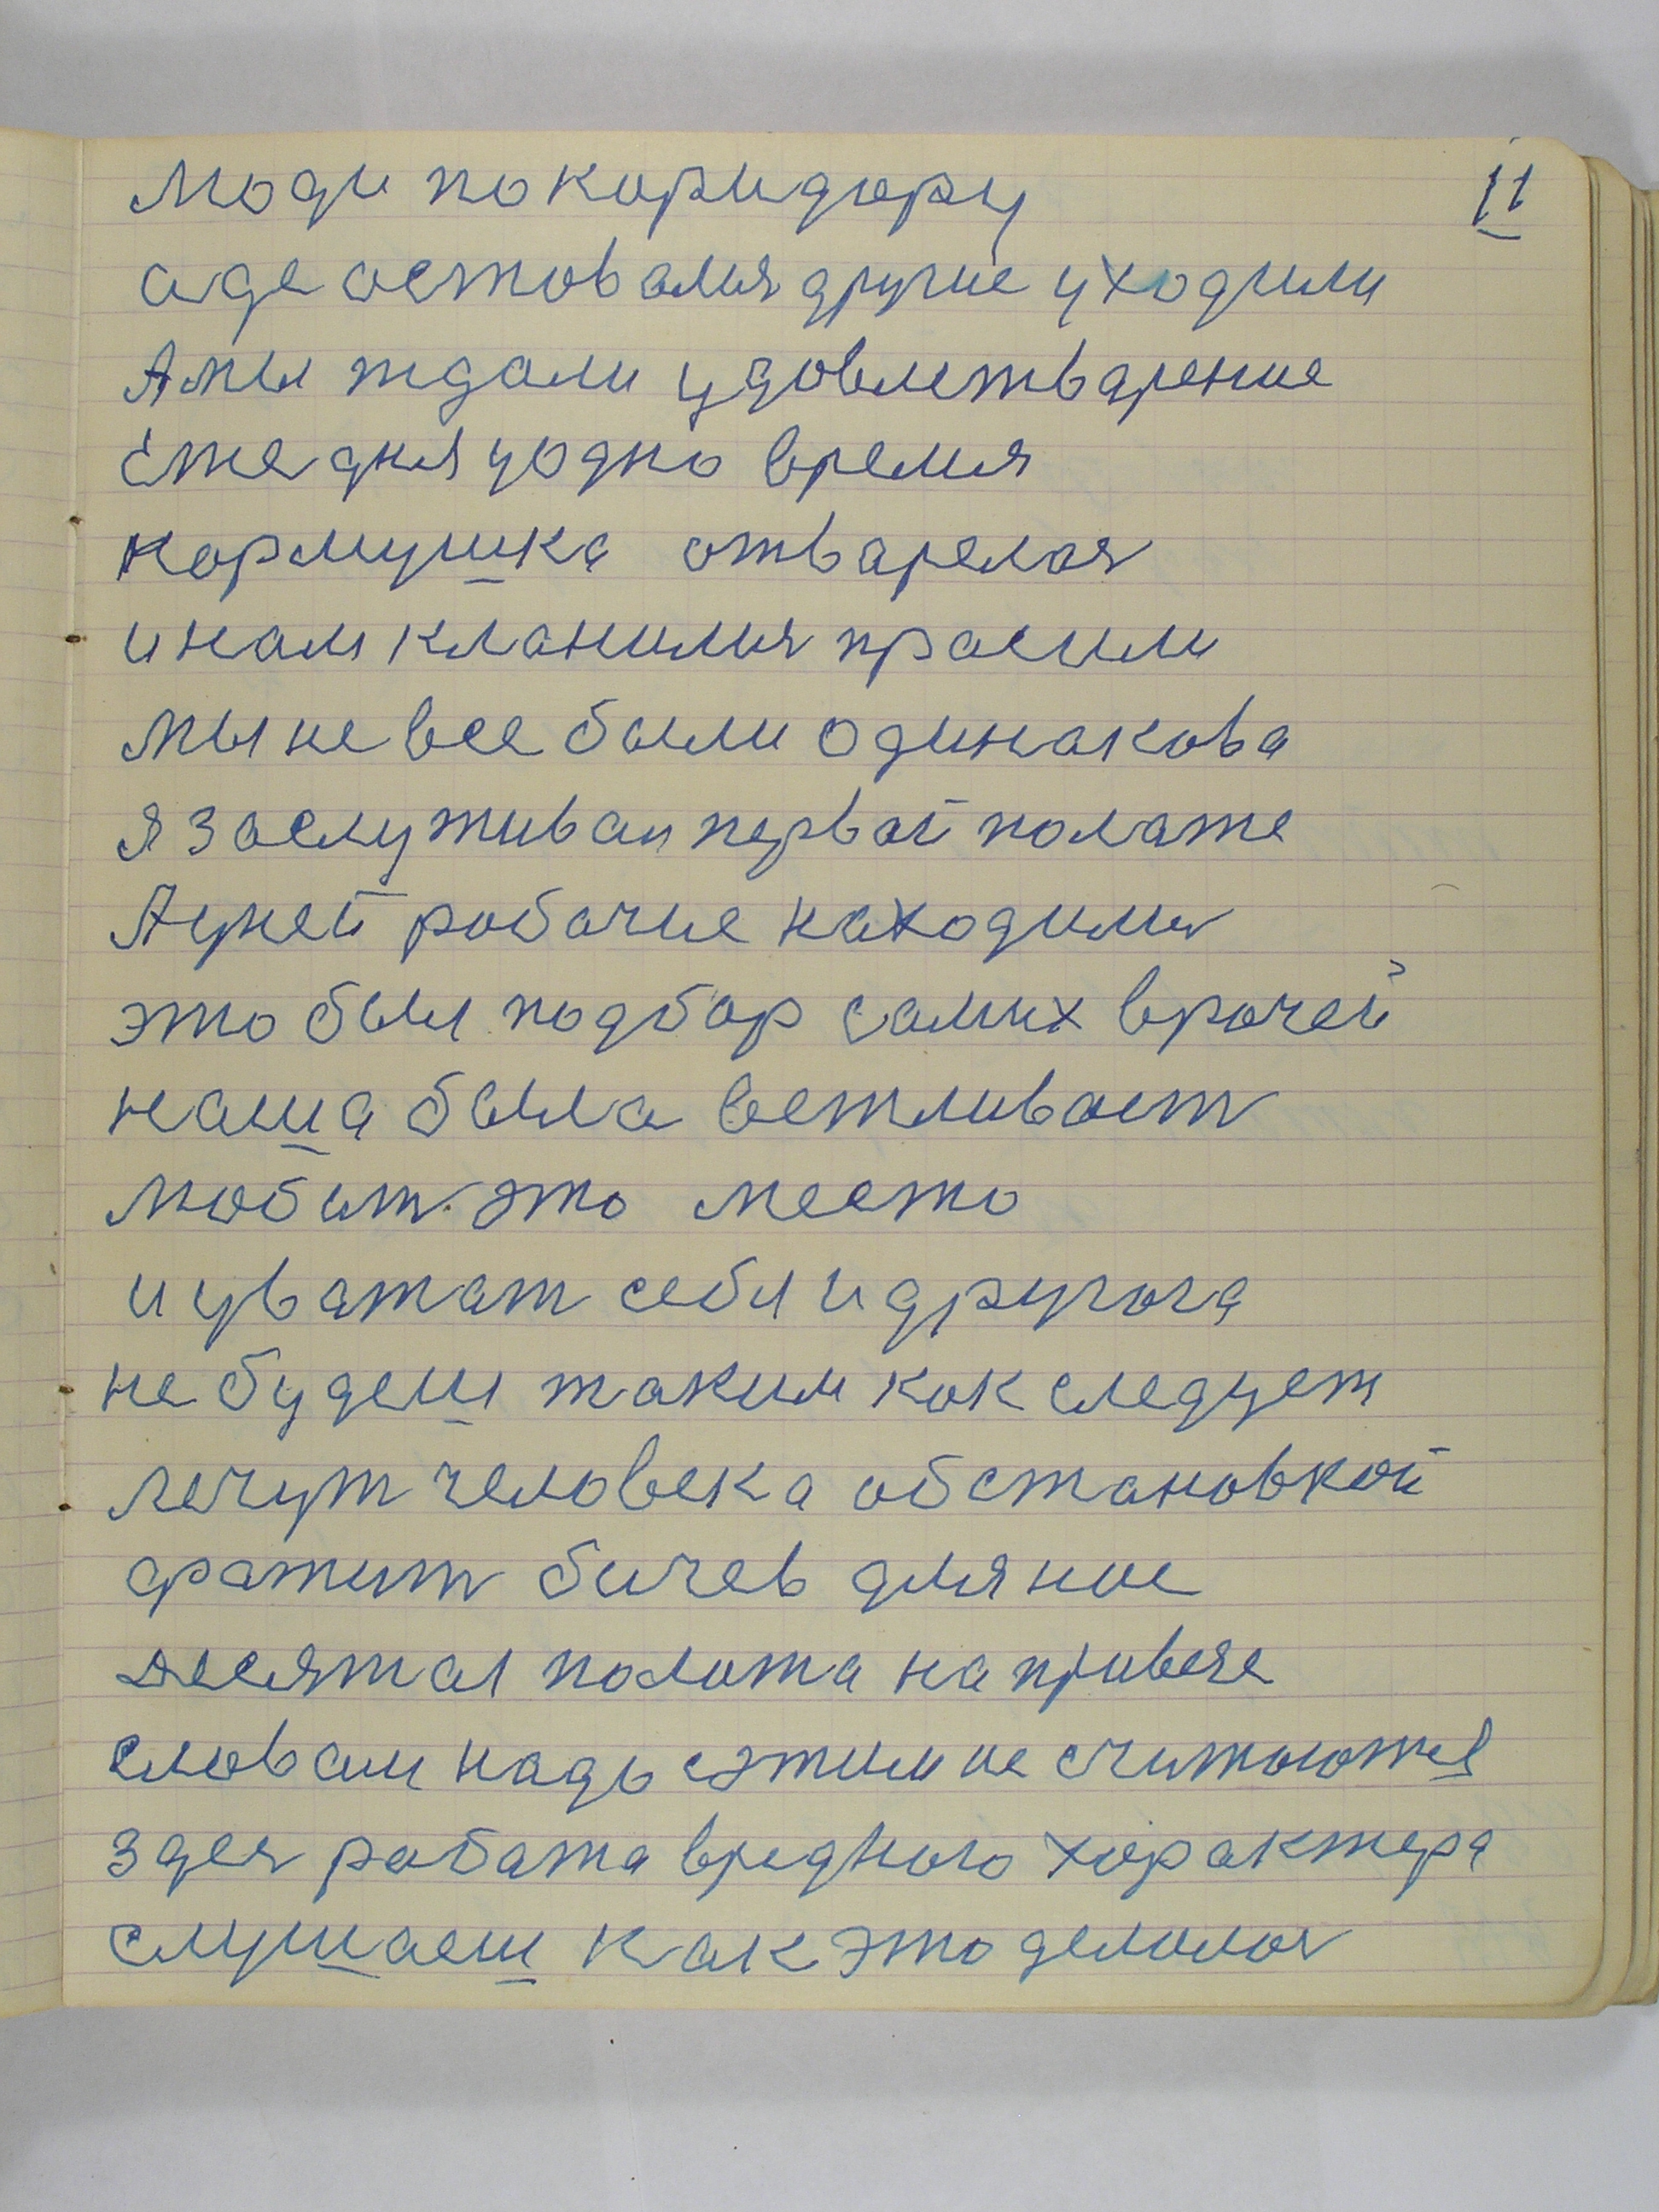 люди по коридору
11
аде оставался другие уходили
А мы ждали удовлетварение
Ежедня уодно время
кормушка отварелася
инам кланился прасили
мы не все были одинакова
я заслуживал первой полате
Ауней рабочие находился
это был подбор самих врачей
наша была ветливаст
любит это место
и уважат себя и другога
не будеш таким как следует
лечут человека обстановкой
дражит бичев для ние
десятая полата на привезе
словам надо сэтим не считаются
здес работа вредного характера
слушаеш как это делалос